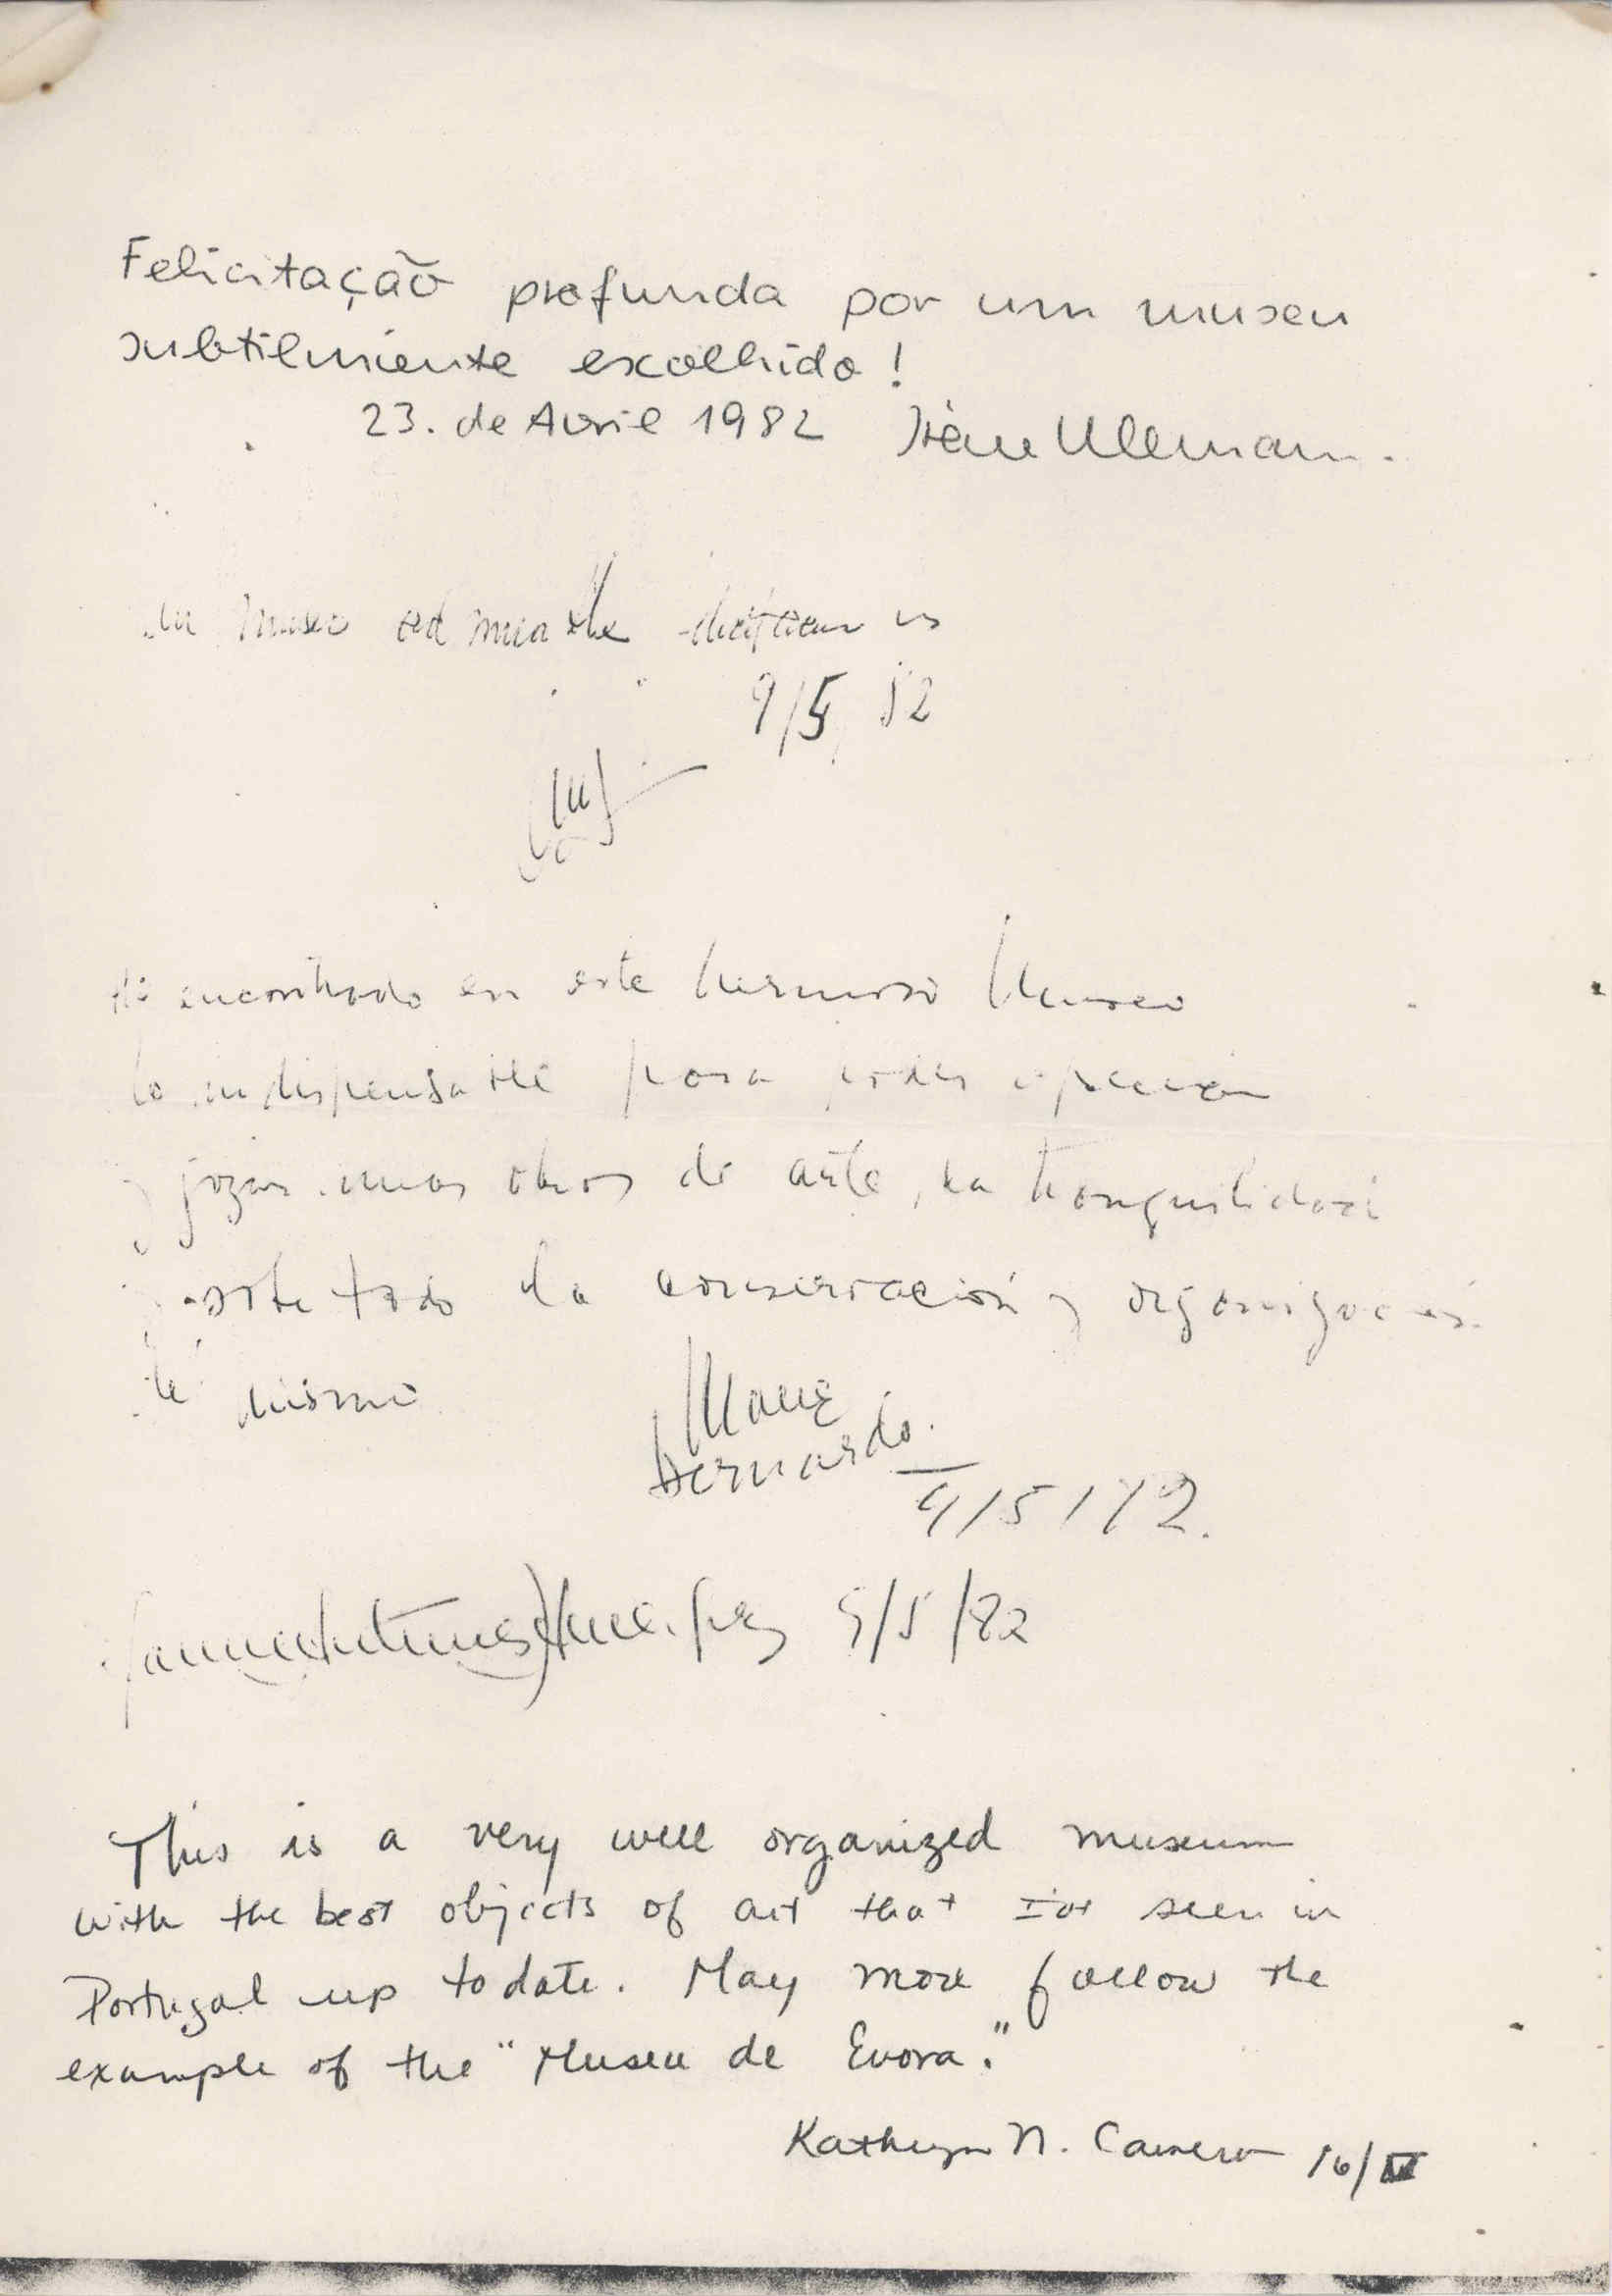 Felicitação profunda por um museu
subtilmente escolhido!
23. de Avril 1982 Irène Ullmann.
museo admirable
9/5/82
He encontrado en este hermoso Museo
lo indispensable para poder apreciar
y gozar unas obras de arte, la tranquilidad
y sobre todo la conservación y organización
del mismo
Mane
Bernardo.
9/5/82.
9/5/82
This is a very well organized museum
with the best objects of art that I've seen in
Portugal up to date. May more follow the
example of the "Museu de Evora."
Kathryn N. Cameron 16/